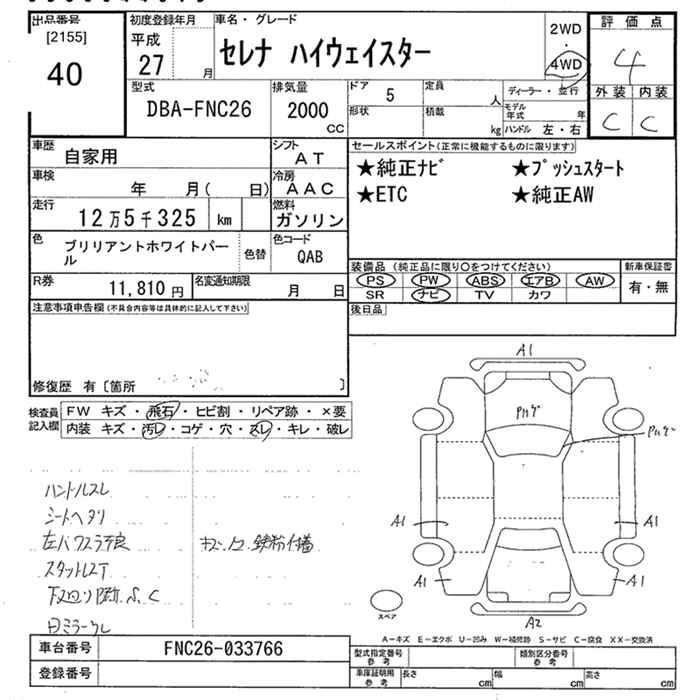 出品番号
[2155]
40
初度登録年月
平成
27 月
車名・グレード
セレナ ハイウェイスター
2WD
・
4WD
評価点
4
外装 内装
C C
型式
DBA-FNC26
排気量
2000
CC
ドア 5
定員 人
形状
積載 kg
ディーラー・並行
モデル年式 年
ハンドル 左・右
車歴 自家用
シフト AT
車検 年 月( 日)
冷房 AAC
走行 12万5千325 km
燃料 ガソリン
色 ブリリアントホワイトパール
色替
色コード QAB
R券 11,810円
名変通知期限 月 日
セールスポイント(正常に機能するものに限ります)
★純正ナビ ★プッシュスタート
★ETC ★純正AW
装備品(純正品に限り○をつけてください)
PS PW ABS エアB AW
SR ナビ TV カワ
新車保証書
有・無
後日品
注意事項申告欄(不具合内容等は具体的に記入して下さい)
修復歴 有[箇所 ]
検査員記入欄
FW キズ・飛石・ヒビ割・リペア跡・×要
内装 キズ・汚レ・コゲ・穴・スレ・キレ・破レ
ハンドルスレ
シートヘタリ
スタットレスT
A1
A1
A1
A1
A1
A2
スペア
A-キズ E-エクボ U-凹み W-補修跡 S-サビ C-腐食 XX-交換済
車台番号 FNC26-033766
登録番号
型式指定番号 参考
類別区分番号 参考
車庫証明用 参考
長さ cm 幅 cm 高さ cm